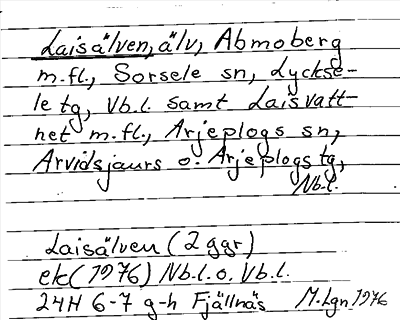 Laisälven, älv, Abmoberg
m.fl., Sorsele sn, Lyckse-
le tg, Vb.l. samt Laisvatt-
net m.fl., Arjeplogs sn,
Arvidsjaurs o. Arjeplogs tg,
Nb.l.
Laisälven (2 ggr)
ek (1976) Nb.l. o. Vb.l.
24H 6-7 g-h Fjällnäs M.Lgn 1976